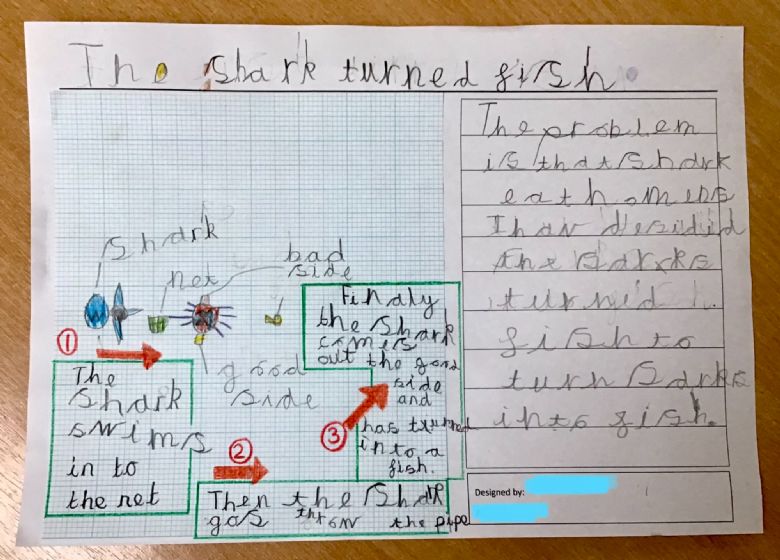 The shark turned fish
The problem
is that shark
eat homens
I hav desidid
the sarks
turned
fish to
turn sarks
into fish.
Shark
net
bad
side
good
side
1
The
shark
swims
in to
the net
2
Then the Shark
gos throw the pipe
3
Finaly
the shark
comes
out the good
side
and
has turned
into a
fish.
Designed by: